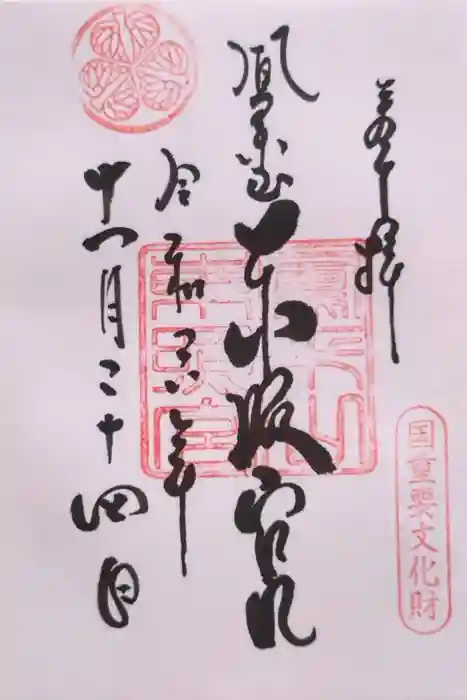 奉拝
国重要文化財
鳳来山東照宮
令和六年
十一月二十四日